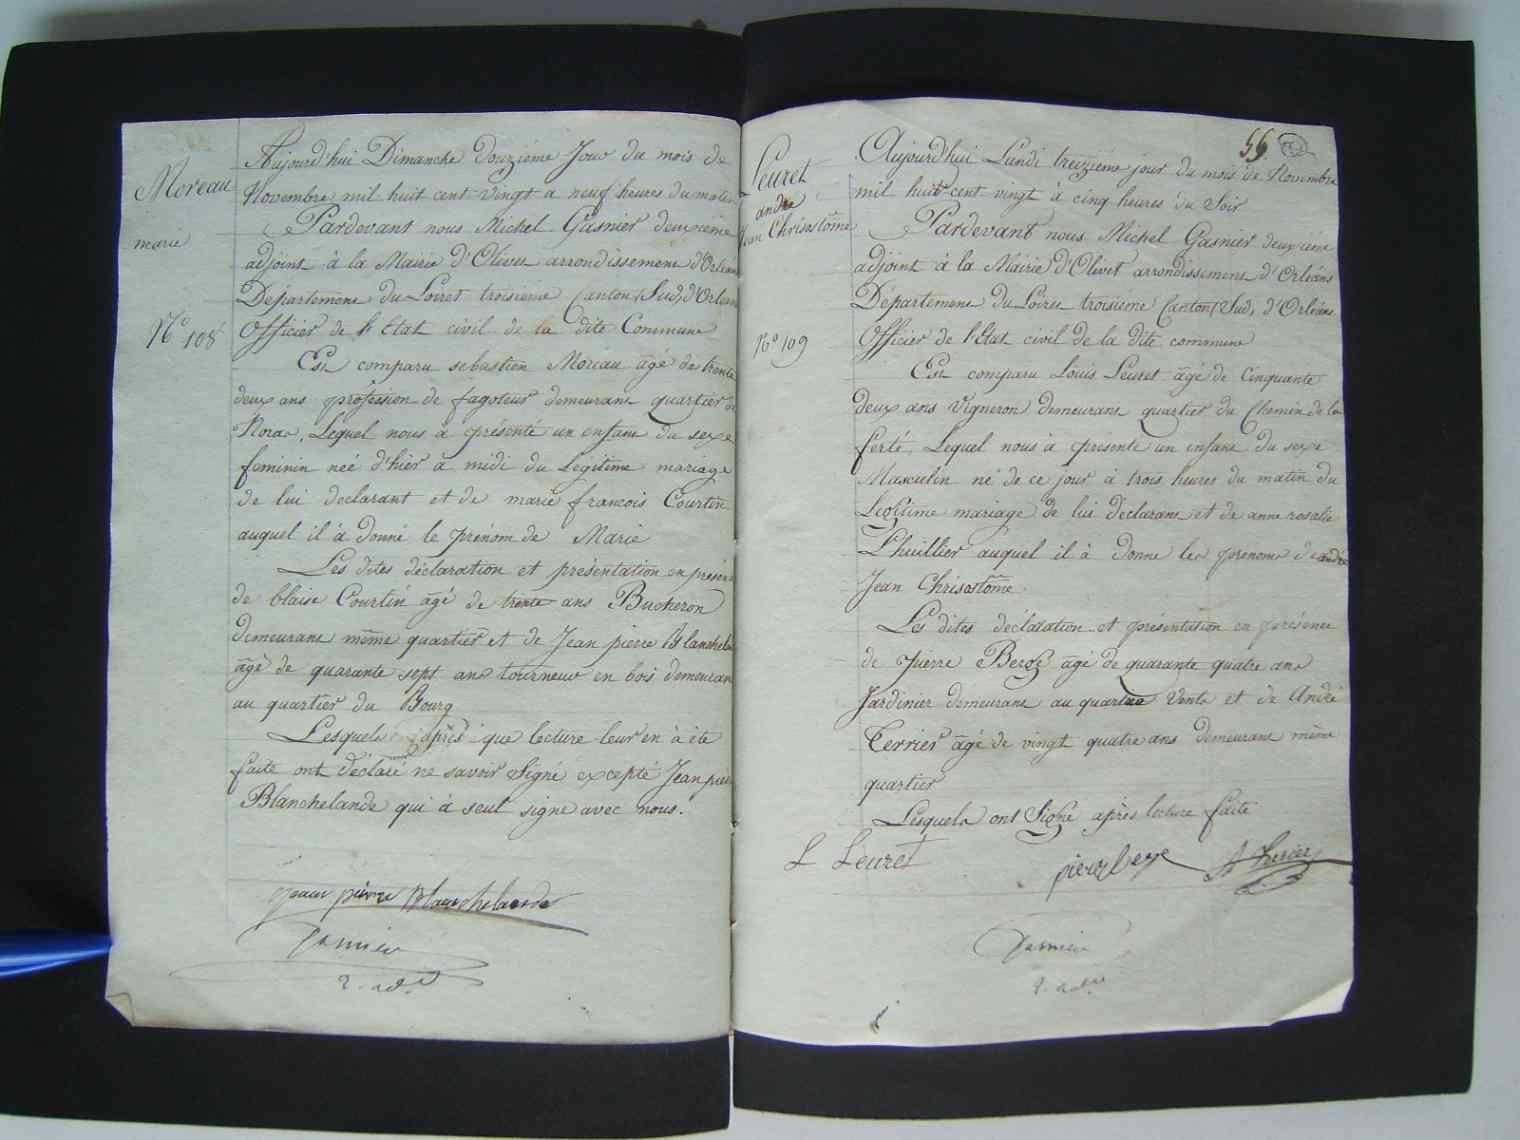 Moreau
marie
N.º 108
Aujourd'hui Dimanche Douziéme Jour du mois de
Novembre mil huit cent vingt a neuf heures du matin
Pardevant nous Michel Gasnier deuxiéme
adjoint à la Mairie d'Olivet arrondissement d'Orléans
Département du Loiret troisiéme Canton (Sud) d'Orleans
Officier de l'Etat civil de la dite Commune
Est comparu sebastien Moreau âgé de trente
deux ans profession de fagoteur demeurant quartier de
Noras, Lequel nous à présenté un enfant du sexe
feminin neé d'hier à midi du Legitime mariage
de lui declarant et de marie francois Courtin
auquel il à donné le prénom de Marie
Les dites déclaration et présentation en présence
de blaise Courtin âgé de trente ans Bucheron
demeurant même quartier et de Jean pierre Blanchelande
âgé de quarante sept ans tourneur en bois demeurant
au quartier du Bourg
Lesquels après que lecture leur en à été
faite ont déclaré ne savoir Signé excepté Jean pierre
Blanchelande qui à seul signe avec nous.
Jean pierre Blanchelande
Gasnier
2. adt
55
Leuret
andré
Jean Chrisostôme
N.º 109
Aujourd'hui Lundi treiziéme jour du mois de Novembre
mil huit cent vingt à cinq heures du Soir
Pardevant nous Michel Gasnier deuxiéme
adjoint à la Mairie d'Olivet arrondissement d'Orléans
Département du Loiret troisiéme Canton (Sud) d'Orléans
Officier de l'Etat civil de la dite commune
Est comparu Louis Leuret âgé de Cinquante
deux ans Vigneron demeurant quartier du Chemin de la
ferté, Lequel nous à présenté un enfant du sexe
Masculin né de ce jour à trois heures du matin du
Legitime mariage de lui déclarant et de anne rosalie
Lhuillier auquel il à donné les prenoms de andré
Jean Chrisostôme
Les dites déclaration et présentation en présence
de pierre Beroge âgé de quarante quatre ans
Jardinier demeurant au quartier Vente et de André
Terrier âgé de vingt quatre ans demeurant même
quartier
Lesquels ont Signé après lecture faite
L Leuret
A Terrier
Gasnier
2. adt